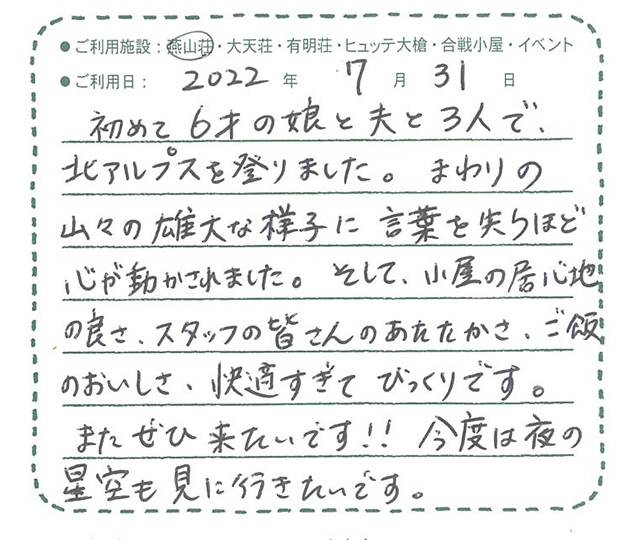 ●ご利用施設：燕山荘・大天荘・有明荘・ヒュッテ大槍・合戦小屋・イベント
●ご利用日：2022年 7月 31日
初めて6才の娘と夫と3人で、
北アルプスを登りました。まわりの
山々の雄大な様子に言葉を失うほど
心が動かされました。そして、小屋の居心地
の良さ、スタッフの皆さんのあたたかさ、ご飯
のおいしさ、快適すぎてびっくりです。
またぜひ来たいです!! 今度は夜の
星空も見に行きたいです。